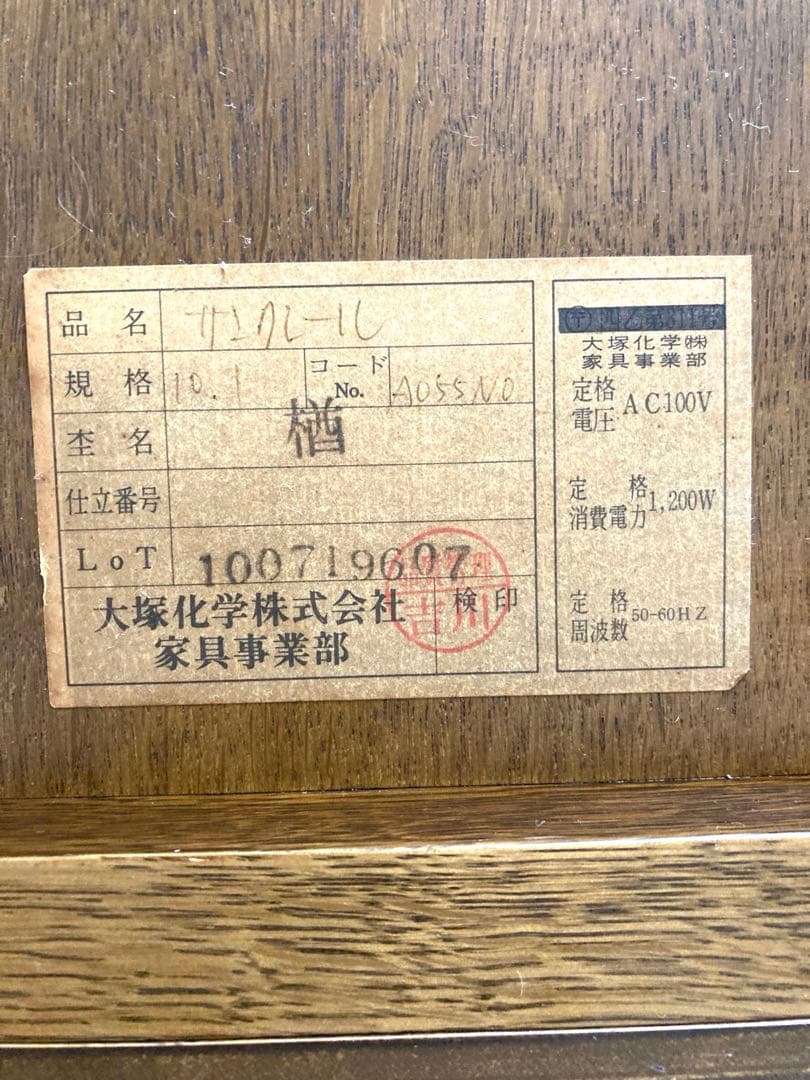 品名
規格 10.1 コードNo. A055NO
杢名 楢
仕立番号
LoT 100719607
大塚化学株式会社
家具事業部
検印
吉川
大塚化学㈱
家具事業部
定格電圧 AC100V
定格消費電力 1,200W
定格周波数 50-60HZ